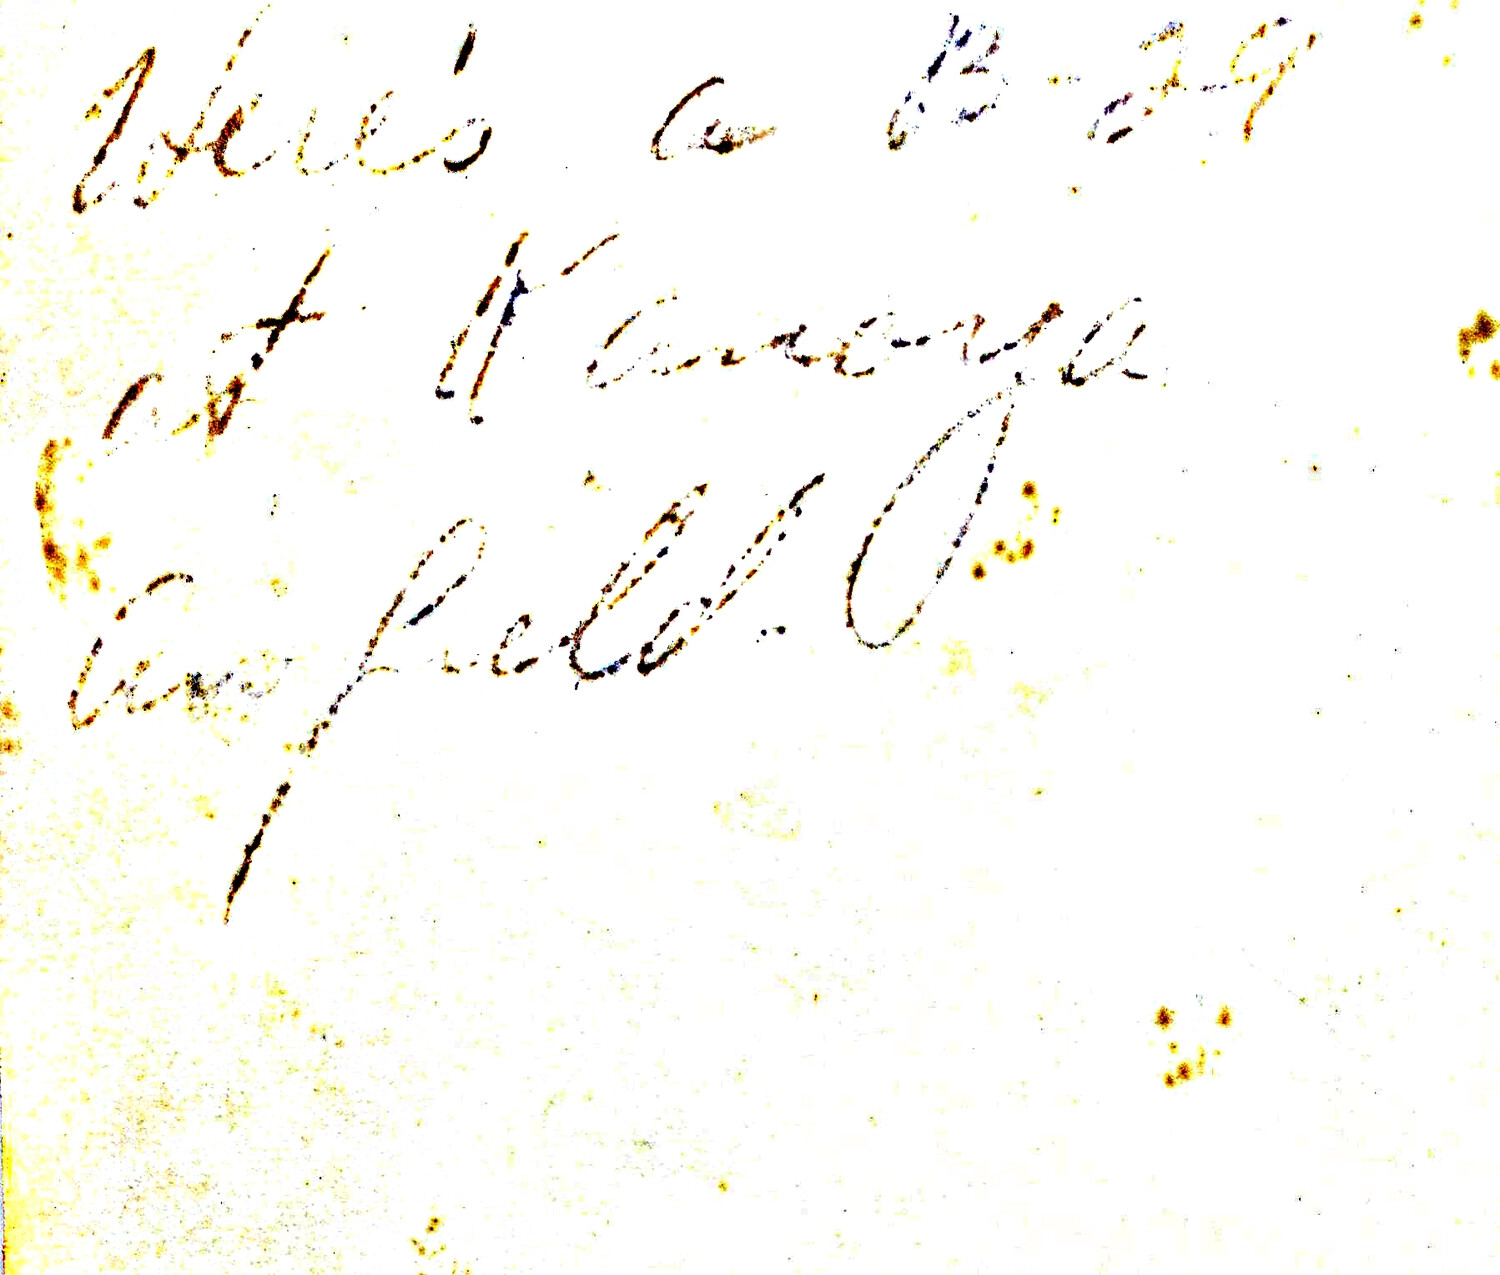 Here's a B-29
at Kanoya
Airfield.